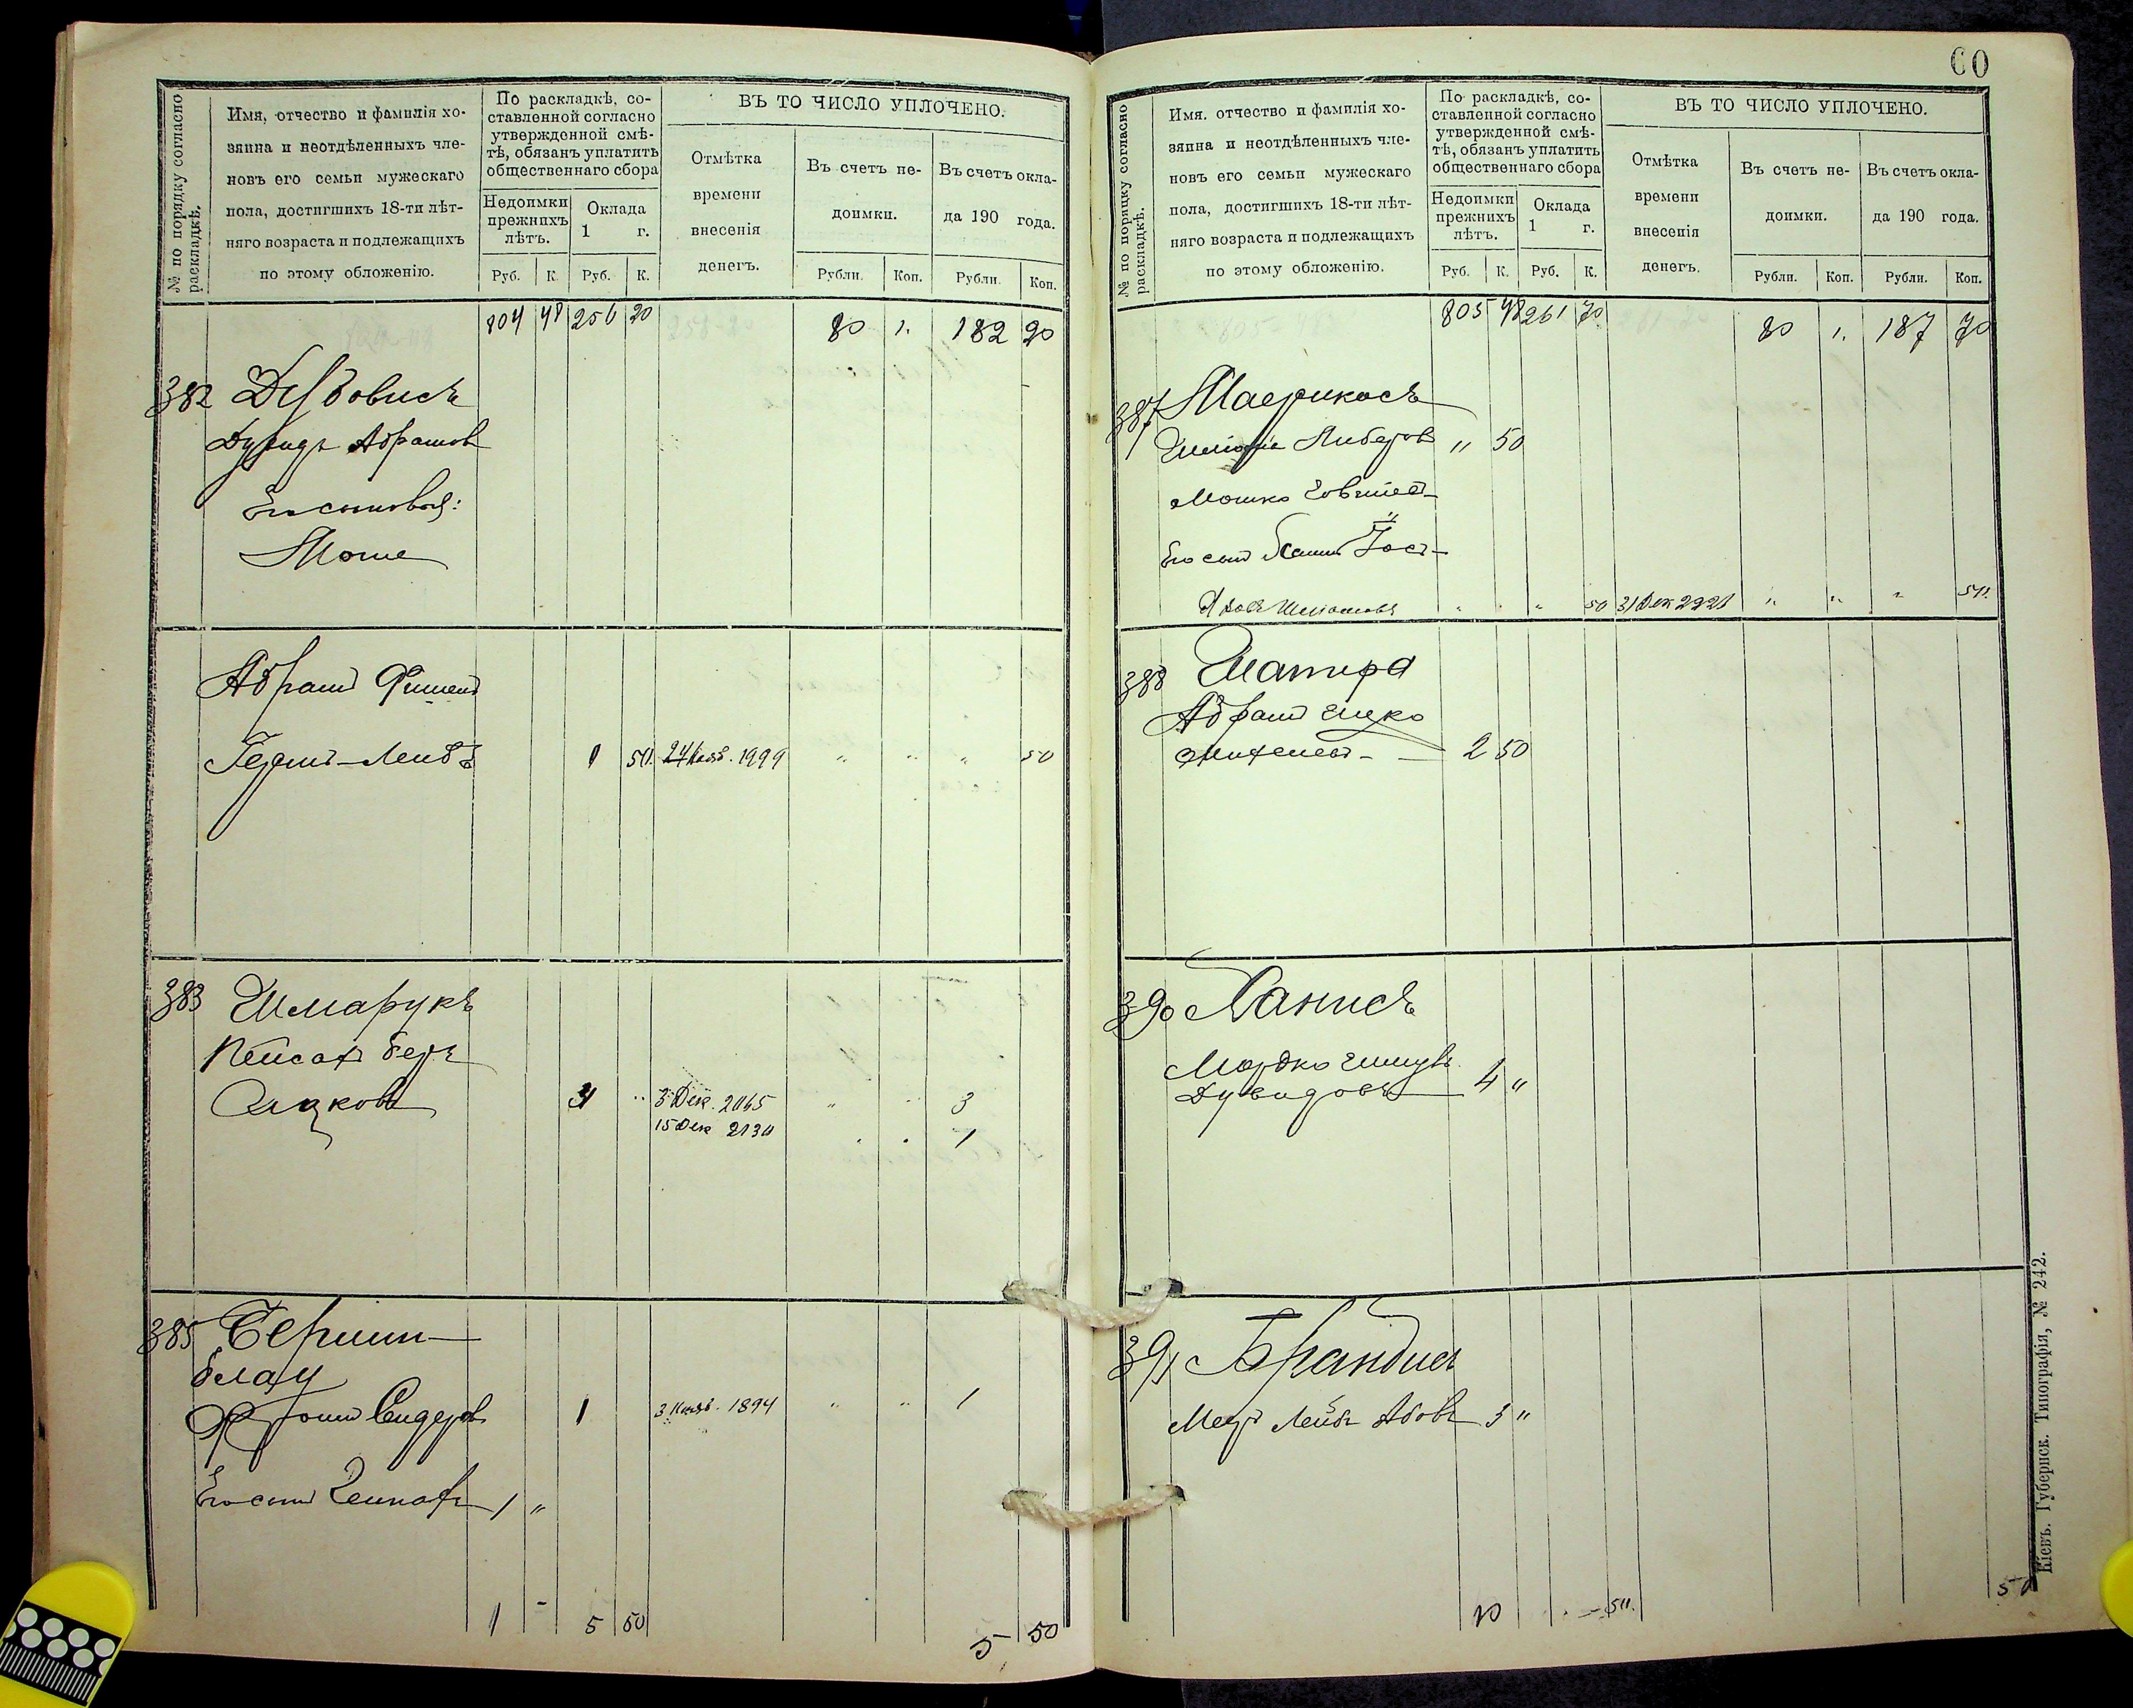 № по порядку согласно раскладкѣ.
Имя, отчество и фамилія хо-
зяина и неотдѣленныхъ чле-
новъ его семьи мужескаго
пола, достигшихъ 18-ти лѣт-
няго возраста и подлежащихъ
по этому обложенію.
По раскладкѣ, со-
ставленной согласно
утвержденной смѣ-
тѣ, обязанъ уплатить
общественнаго сбора
Недоимки
прежнихъ
лѣтъ.
Оклада
1 г.
Руб. К. Руб. К.
ВЪ ТО ЧИСЛО УПЛОЧЕНО.
Отмѣтка
времени
внесенія
денегъ.
Въ счетъ не-
доимки.
Рубли. Коп.
Въ счетъ окла-
да 190 года.
Рубли. Коп.
804 48 256 20 80 1. 182 20
382
Дувидъ Абрамов
Его сыновья:
Моше
Абрам
Герш-Лейбъ 1 50 24 Нояб. 1999 " " " 50
383 Шмарукъ
Пейсах Беръ
Ицков 4 " 3 Дек. 2065 " " 3
15 Дек 2130 . . 1
385 Берштн-
блау
Фроим Сендеров 1 3 Нояб. 1894 " " 1
Его сын 1 "
1 - 5 50 5 50
60
№ по порядку согласно раскладкѣ.
Имя. отчество и фамилія хо-
зяина и неотдѣленныхъ чле-
новъ его семьи мужескаго
пола, достигшихъ 18-ти лѣт-
няго возраста и подлежащихъ
по этому обложенію.
По раскладкѣ, со-
ставленной согласно
утвержденной смѣ-
тѣ, обязанъ уплатить
общественнаго сбора
Недоимки
прежнихъ
лѣтъ.
Оклада
1 г.
Руб. К. Руб. К.
ВЪ ТО ЧИСЛО УПЛОЧЕНО.
Отмѣтка
времени
внесенія
денегъ.
Въ счетъ не-
доимки.
Рубли. Коп.
Въ счетъ окла-
да 190 года.
Рубли. Коп.
805 48 261 70 80 1. 187 70
387 Маерикасъ
Либеров " 50
Мошко
Его сын
" . " 50 31 Дек 2221 " " " 50
388 Шапира
Абрам Ицко
2 50
390 Ханисъ
Мордко
Дувидовъ 4 "
391 Брандис
Меер Лейбъ Абовъ 3 "
10 . - 50. 50
Кіевъ. Губернск. Типографія, № 242.